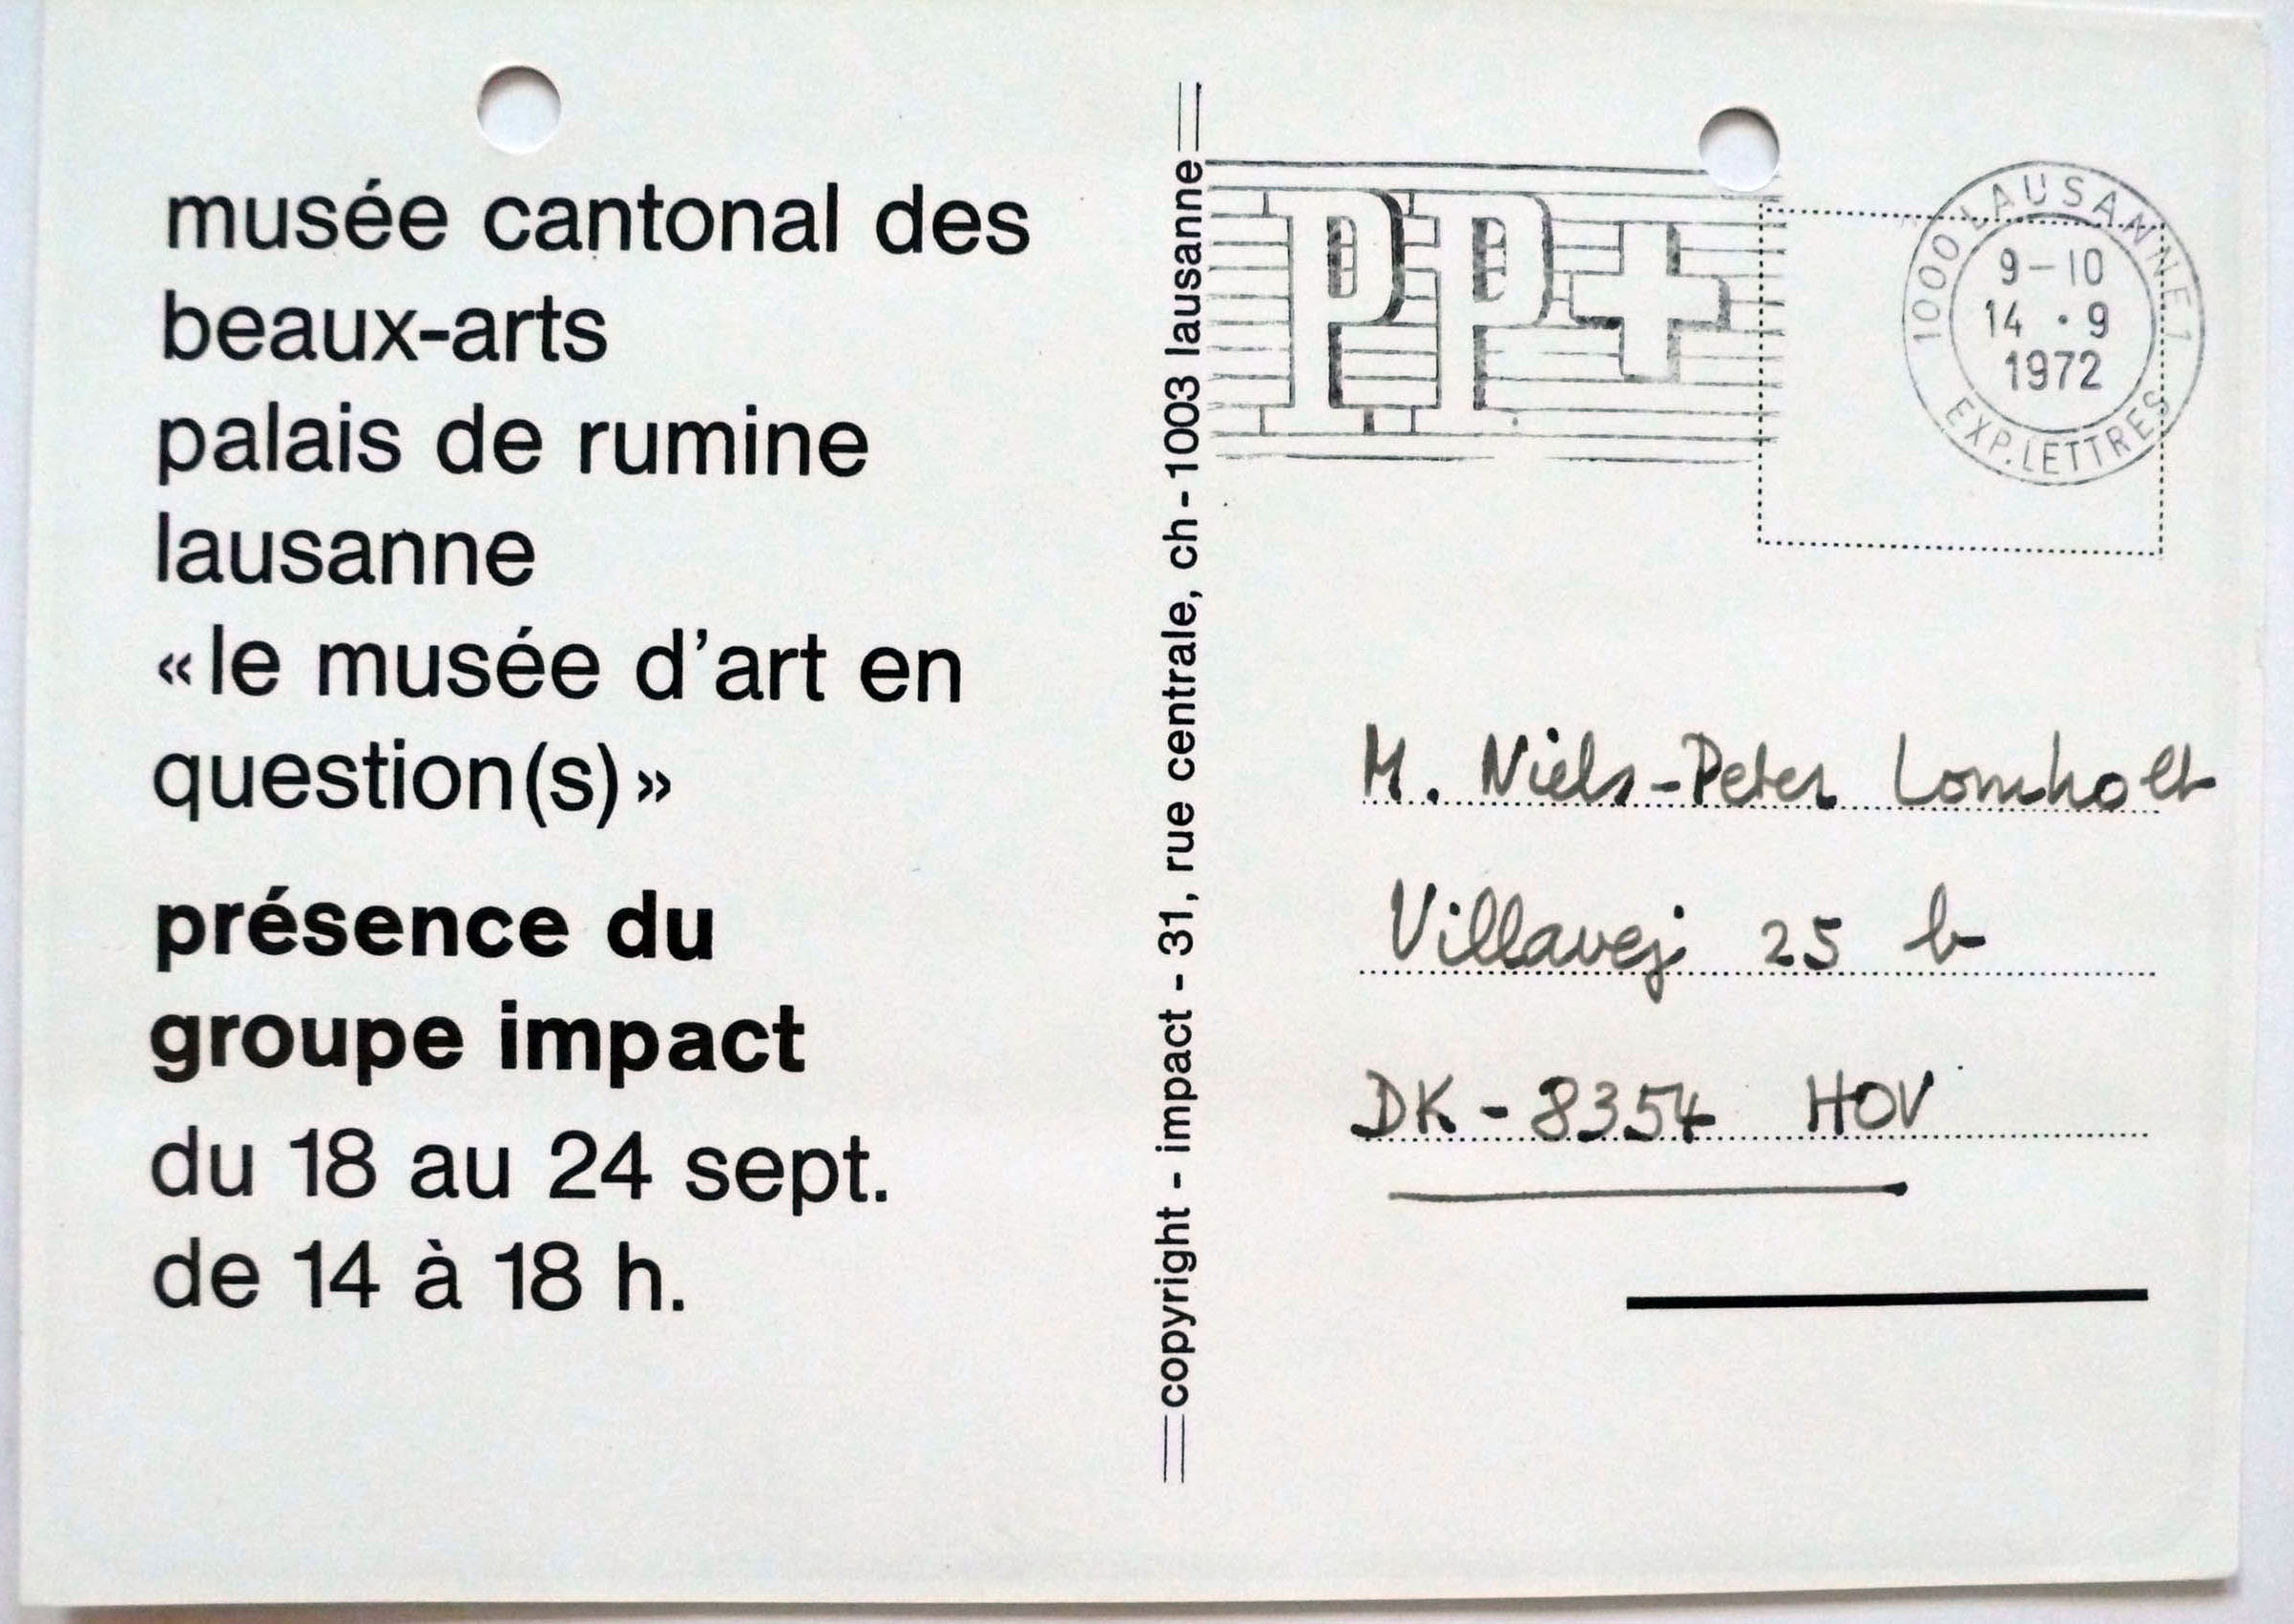 musée cantonal des
beaux-arts
palais de rumine
lausanne
«le musée d'art en
question(s)»
présence du
groupe impact
du 18 au 24 sept.
de 14 à 18 h.
copyright - impact - 31, rue centrale, ch - 1003 lausanne
PP+
1000 LAUSANNE 1
9-10
14 • 9
1972
EXP. LETTRES
M. Niels-Peter Lomholt
Villavej 25 b
DK - 8354 HOV